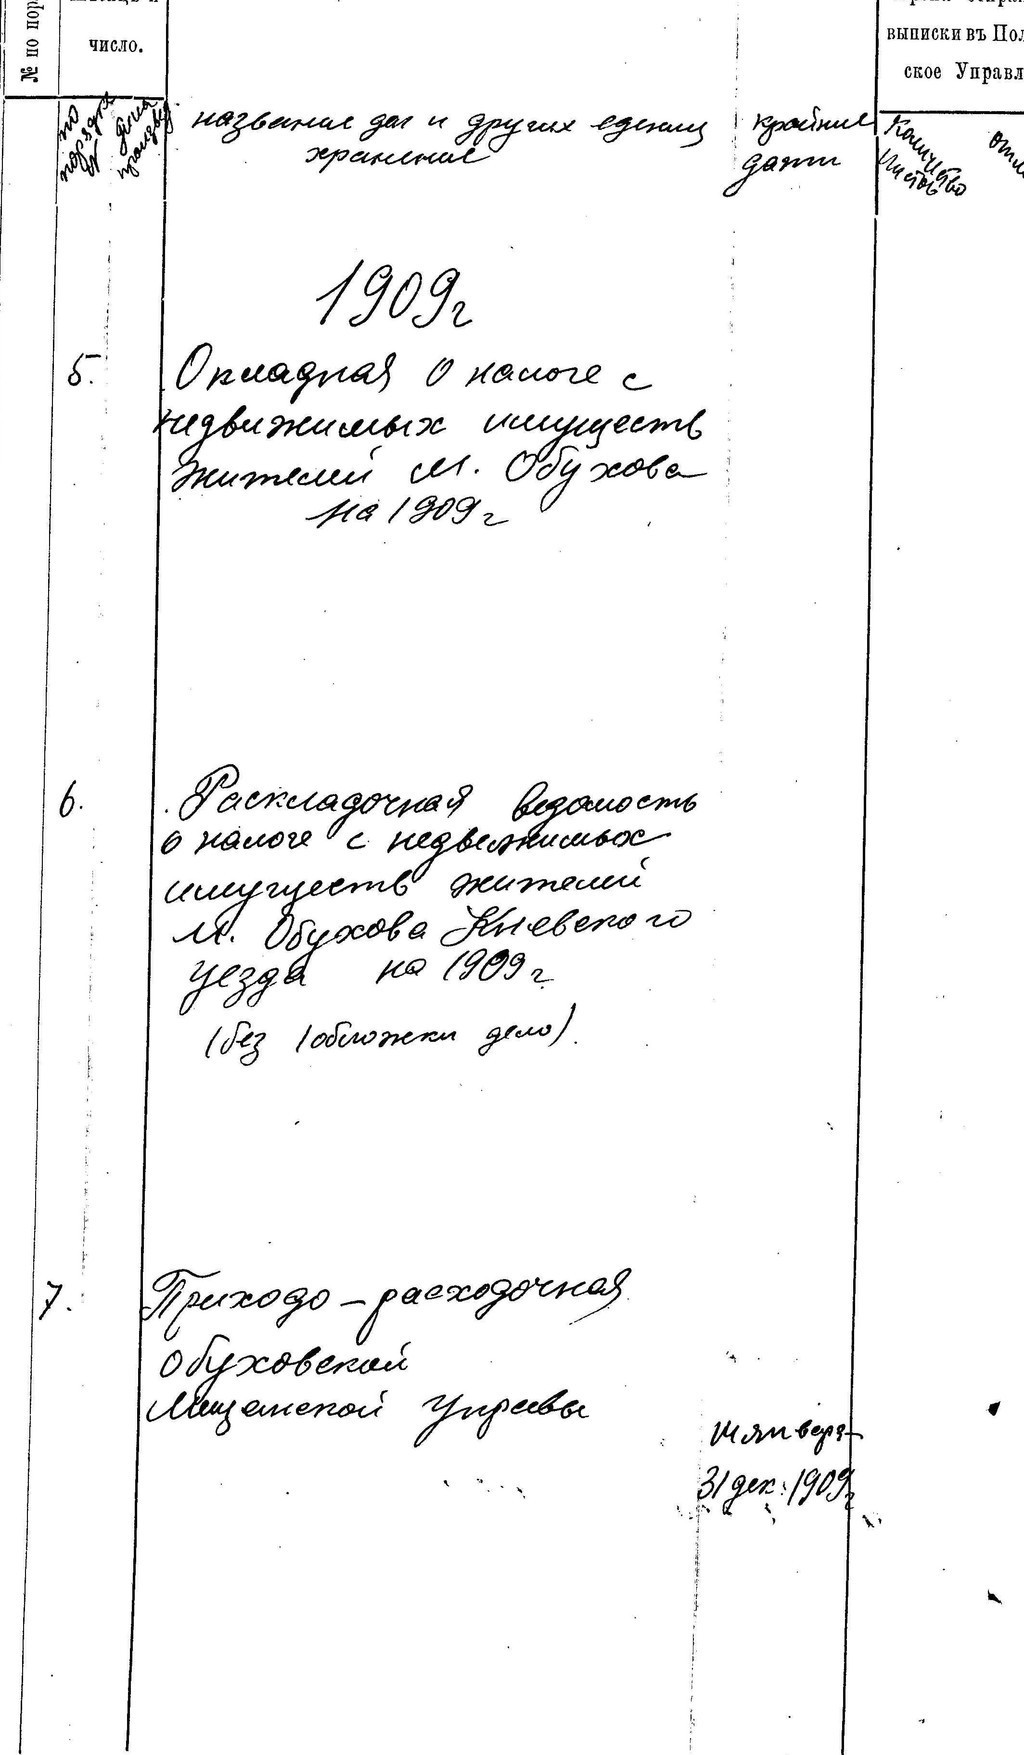 № по пор
число.
выписки въ Пол
ское Управл
по
порядку
№
дела
название дел и других единиц
хранение
крайние
даты
Количество
листов
1909г
5. Окладная о налоге с
недвижимых имуществ
жителей м. Обухова
на 1909г
6. Раскладочная ведомость
о налоге с недвежимых
имуществ жителей
м. Обухова Киевского
уезда на 1909г.
(без 1 обложки дело).
7. Приходо-расходочная
Обуховской
Мещанской Управы
января-
31 дек. 1909г